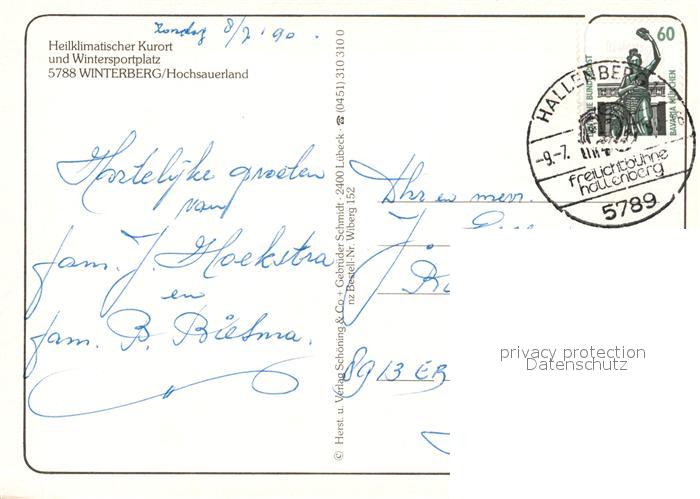 Zondag 8/7 '90.
Heilklimatischer Kurort
und Wintersportplatz
5788 WINTERBERG/Hochsauerland
Hartelijke groeten
van
fam. J. Hoekstra
en
fam. B. Bielsma.
© Herst. u. Verlag Schöning & Co + Gebrüder Schmidt · 2400 Lübeck · ☎ (0451) 310 310 0
nz Bestell-Nr. Wiberg 152
60
DEUTSCHE BUNDESPOST
BAVARIA MÜNCHEN
HALLENBERG
-9.-7.
freilichtbühne
hallenberg
5789
Dhr en mevr.
J.
8913 ER
privacy protection
Datenschutz